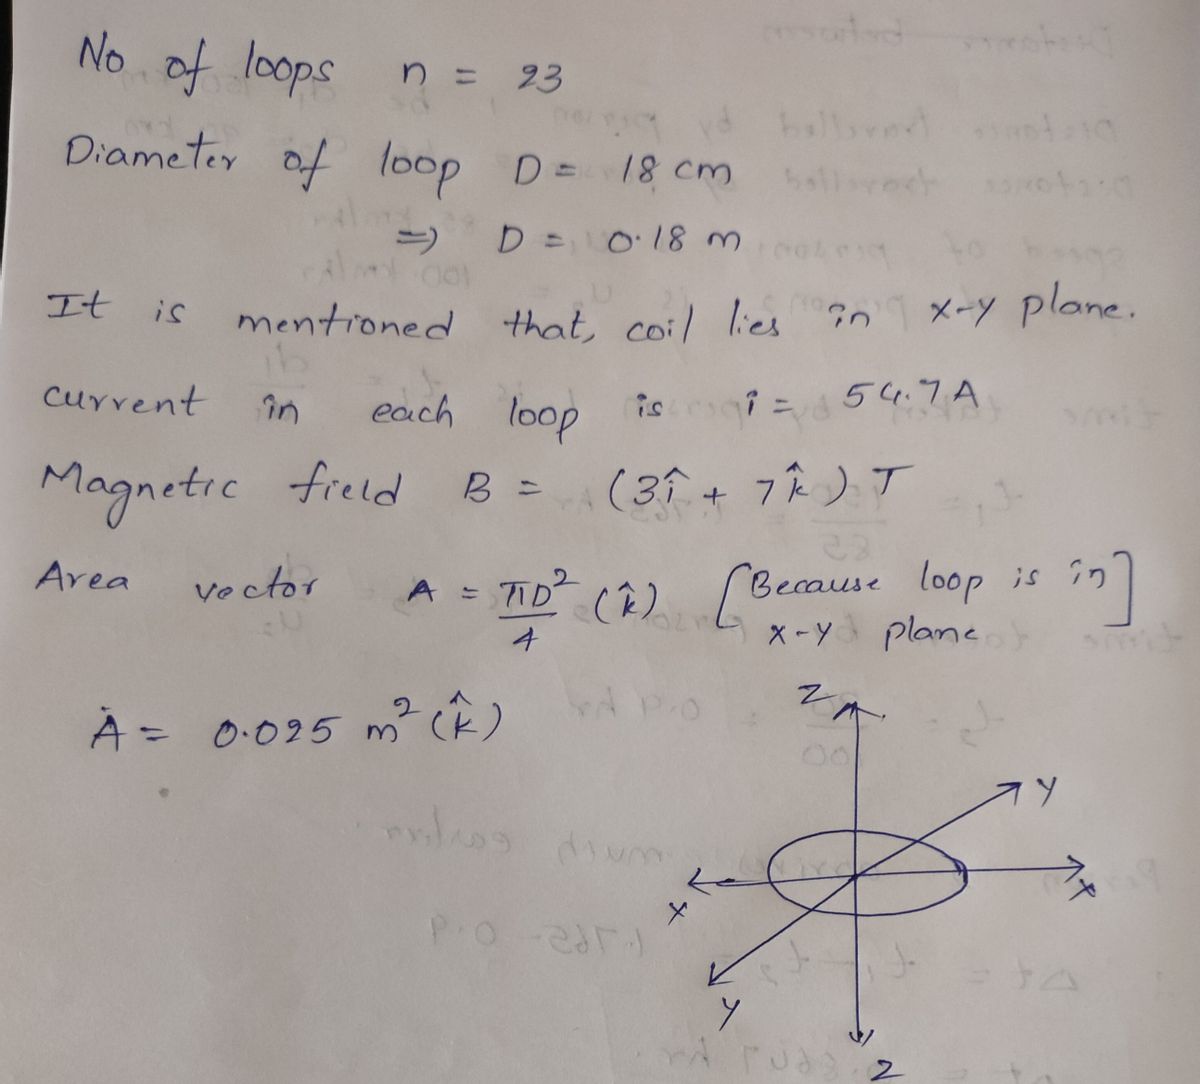 No of loops n = 23
Diameter of loop D = 18 cm
⇒ D = 0.18 m
It is mentioned that, coil lies in x-y plane.
current in each loop is i = 54.7 A
Magnetic field B = (3î + 7k̂) T
Area vector A = πD²/4 (k̂) [Because loop is in x-y plane]
A = 0.025 m² (k̂)
Z
Y
X
X
Y
Z